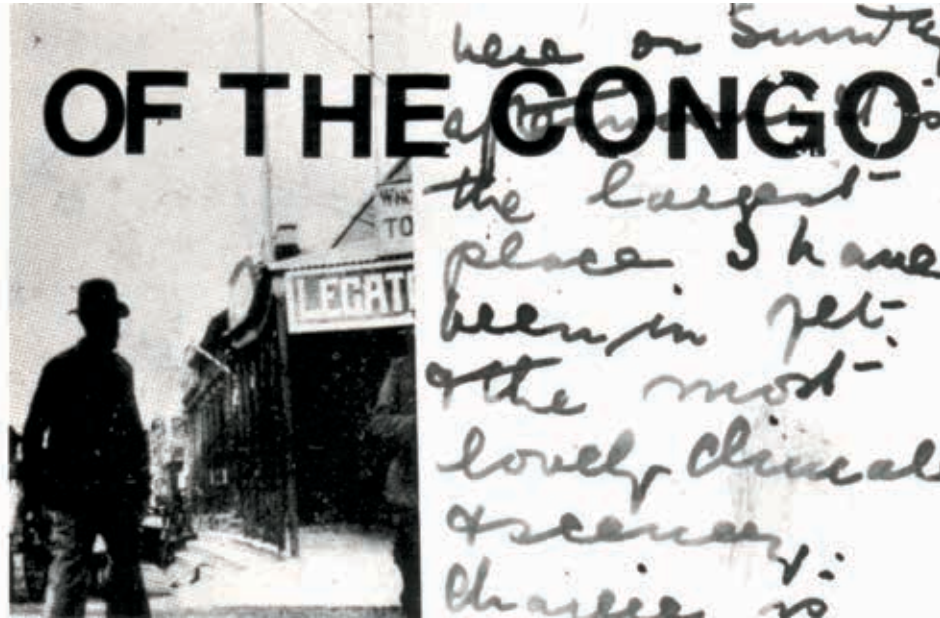 OF THE CONGO
TO
LEGATI
here on Sunday
afternoon it is
the largest
place I have
been in yet
& the most
lovely climate
& scenery.
Charlie is